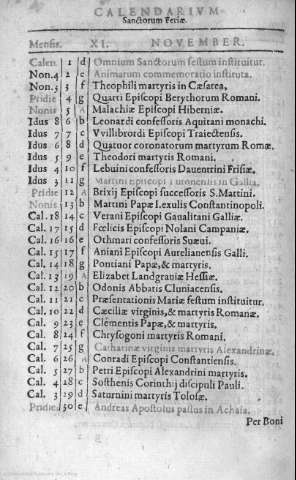 CALENDARIVM
Sanctorum Feriæ.
Mensis. XI. NOVEMBER.
Calen. 1 d Omnium Sanctorum festum instituitur.
Non. 4 2 e Animarum commemoratio instituta.
Non. 3 3 f Theophili martyris in Cæsarea.
Pridie 4 g Quarti Episcopi Berythorum Romani.
Nonis 5 A Malachiæ Episcopi Hiberniæ.
Idus 8 6 b Leonardi confessoris Aquitani monachi.
Idus 7 7 c Vvillibrordi Episcopi Traiectensis.
Idus 6 8 d Quatuor coronatorum martyrum Romæ.
Idus 5 9 e Theodori martyris Romani.
Idus 4 10 f Lebuini confessoris Dauentrini Frisiæ.
Idus 3 11 g Martini Episcopi Turonensis in Gallia.
Pridie 12 A Brixij Episcopi successoris S. Martini.
Nonis 13 b Martini Papæ I. exulis Constantinopoli.
Cal. 18 14 c Verani Episcopi Gaualitani Galliæ.
Cal. 17 15 d Fœlicis Episcopi Nolani Campaniæ.
Cal. 16 16 e Othmari confessoris Sueui.
Cal. 15 17 f Aniani Episcopi Aurelianensis Galli.
Cal. 14 18 g Pontiani Papæ, & martyris.
Cal. 13 19 A Elizabet Landgrauiæ Hessiæ.
Cal. 12 20 b Odonis Abbatis Cluniacensis.
Cal. 11 21 c Præsentationis Mariæ festum instituitur.
Cal. 10 22 d Cæciliæ virginis, & martyris Romanæ.
Cal. 9 23 e Clementis Papæ, & martyris.
Cal. 8 24 f Chrysogoni martyris Romani.
Cal. 7 25 g Catharinæ virginis martyris Alexandrinæ.
Cal. 6 26 A Conradi Episcopi Constantiensis.
Cal. 5 27 b Petri Episcopi Alexandrini martyris.
Cal. 4 28 c Sosthenis Corinthij discipuli Pauli.
Cal. 3 29 d Saturnini martyris Tolosæ.
Pridie 30 e Andreas Apostolus passus in Achaia.
Per Boni